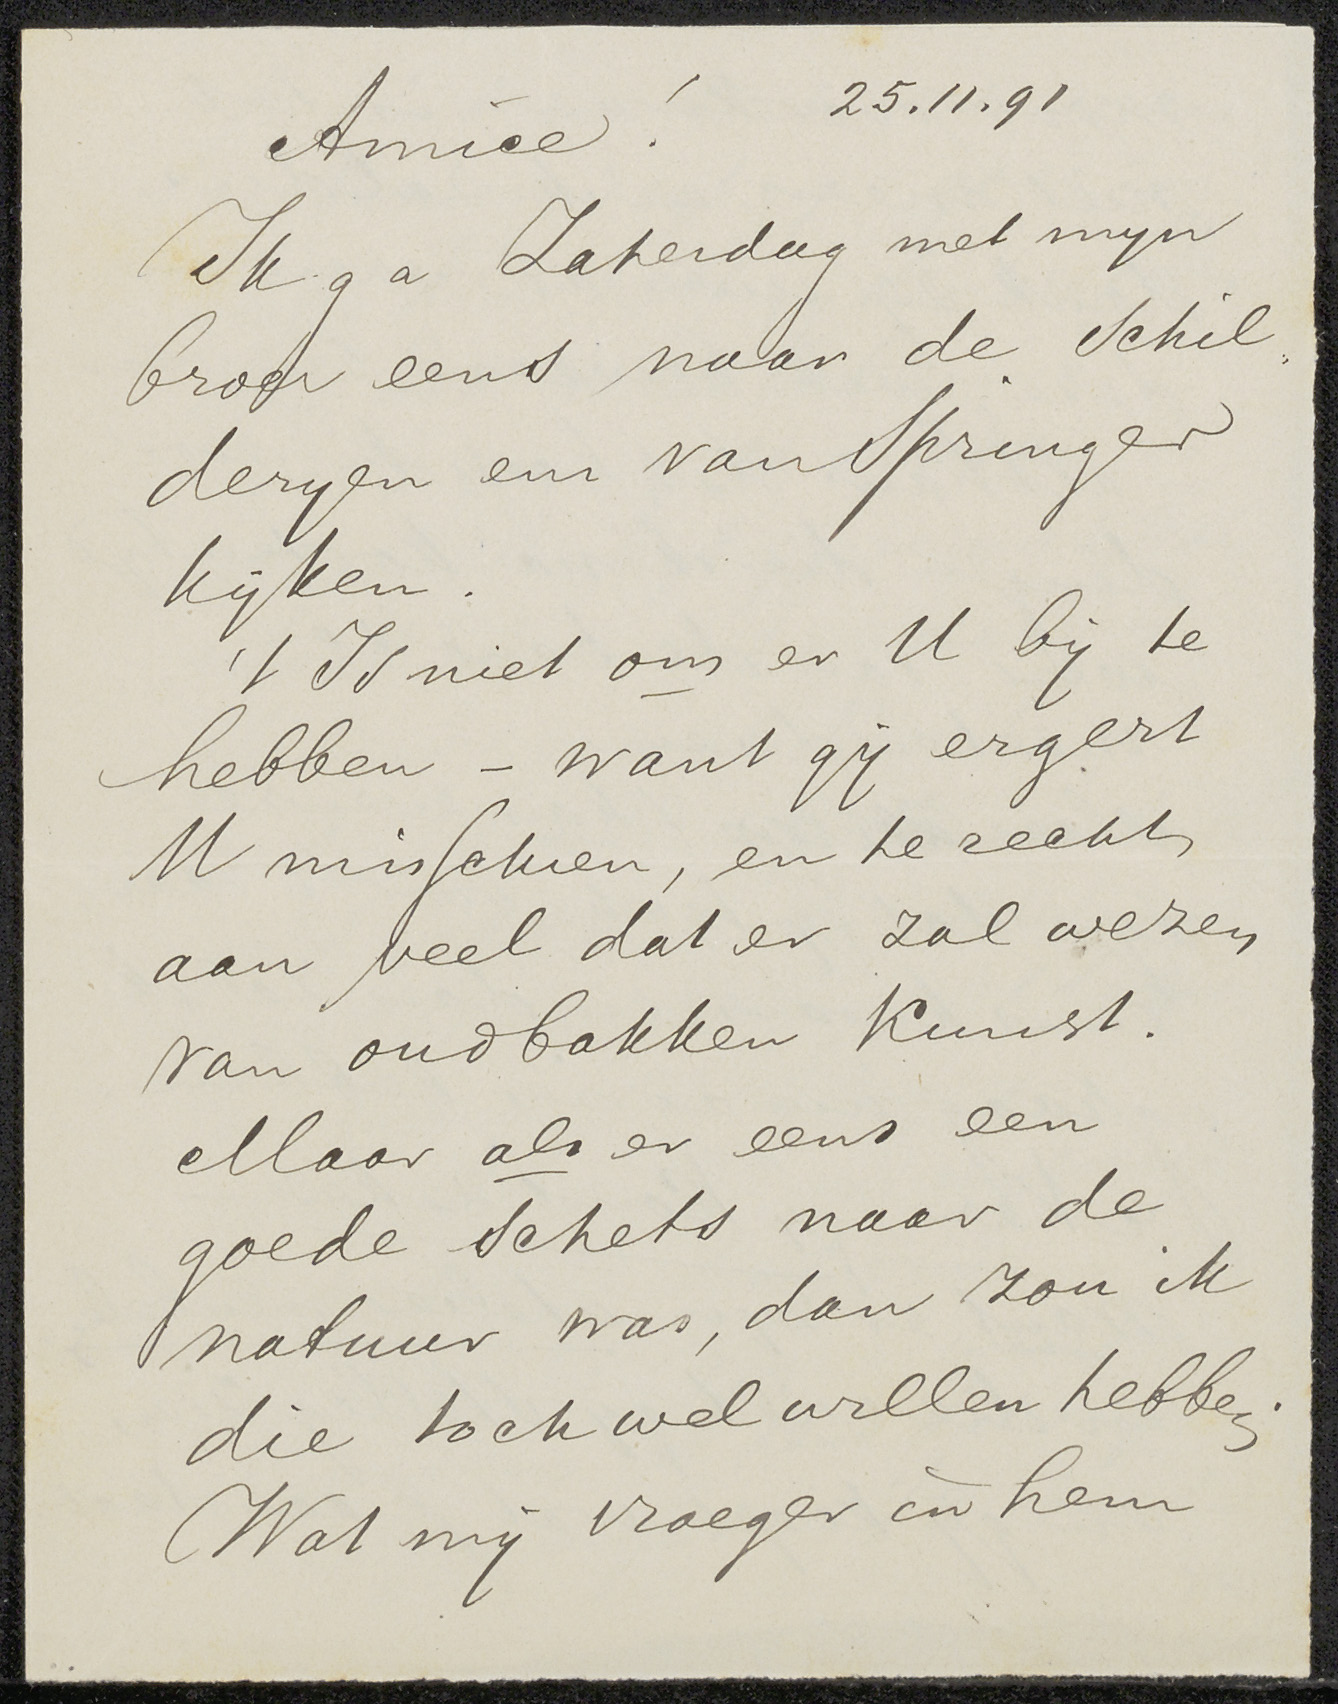 Amice! 25.11.91
Ik ga Zaterdag met myn
broer eens naar de schil-
deryen em van Springer
kijken.
't Is niet om er U bij te
hebben – want gij ergert
U misschien, en te recht,
aan veel dat er zal wezen
van oudbakken kunst.
Maar als er eens een
goede schets naar de
natuur was, dan zou ik
die toch wel willen hebben.
Wat mij vroeger in hem